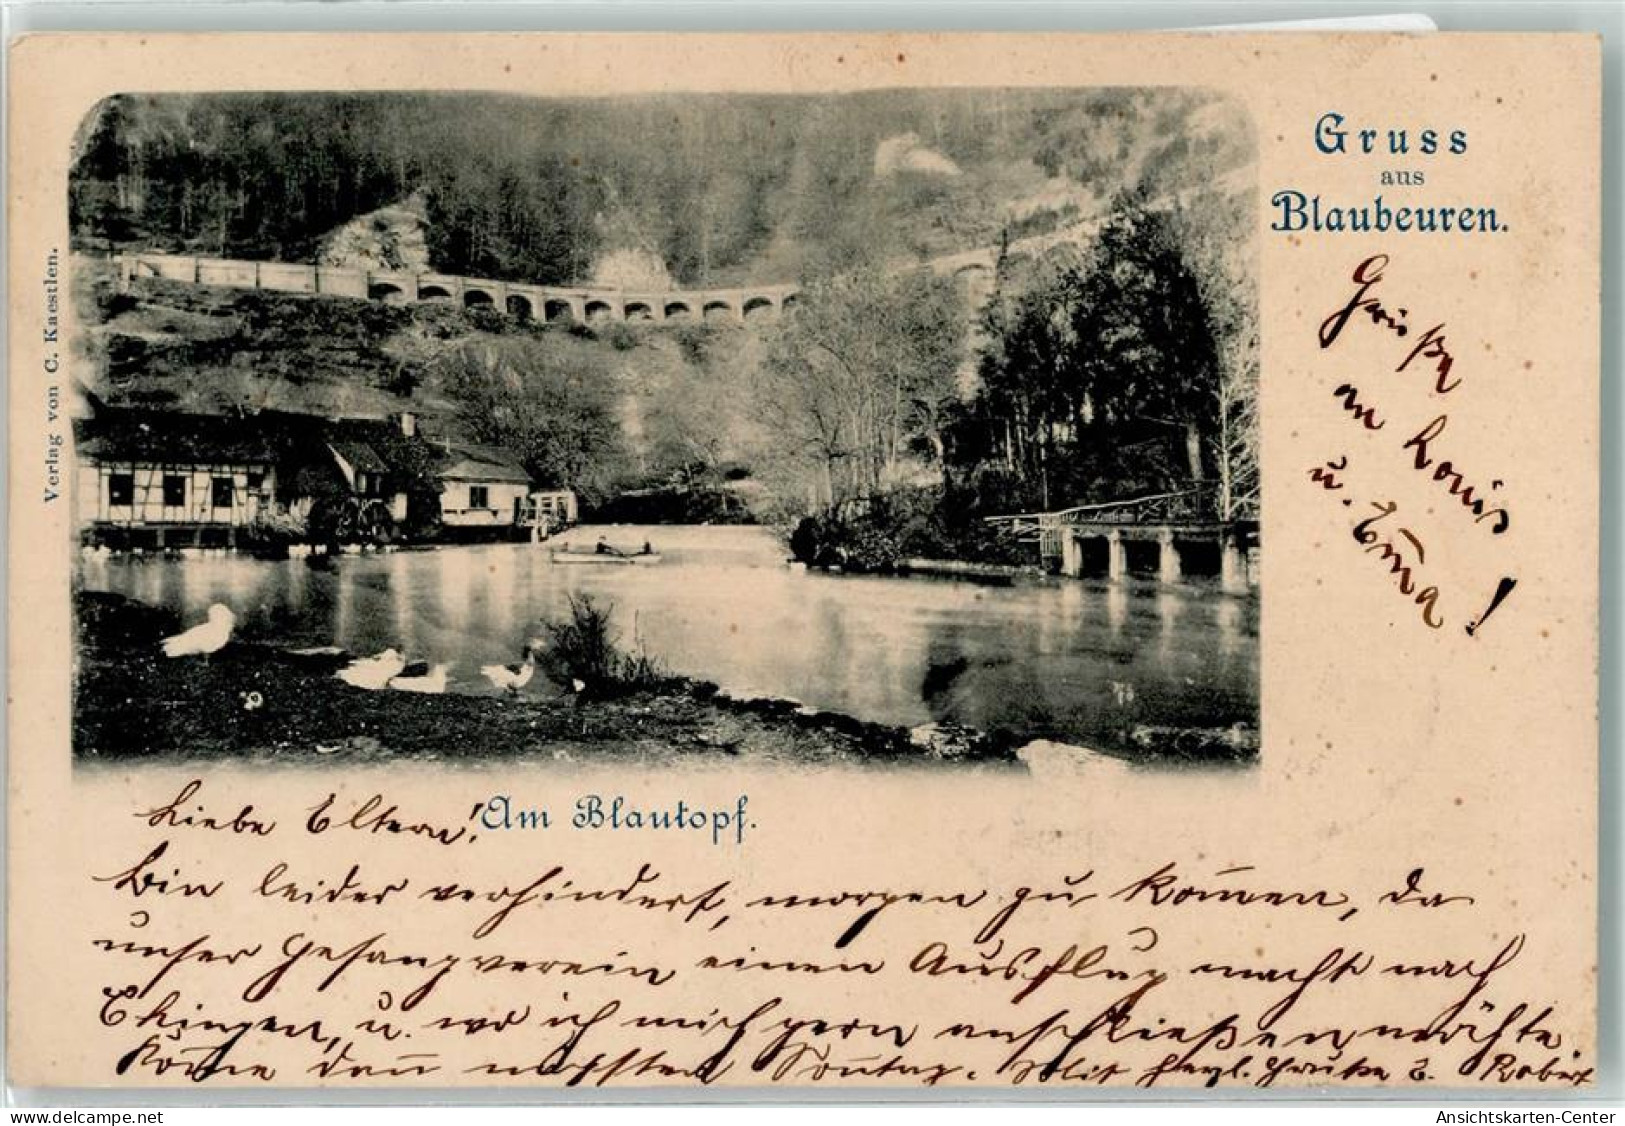 Gruss
aus
Blaubeuren.
Verlag von C. Kaestlen.
Grüße
an Louis
u. Emma!
Am Blautopf.
Liebe Eltern!
Bin leider verhindert, morgen zu kom̄en, da
unser Gesangverein einen Ausflug macht nach
Ehingen, u. wo ich mich gern anschließen möchte.
Kom̄e dan̄ nächsten Sonntag. Mit herzl. Gruße E. Robert
Ansichtskarten-Center